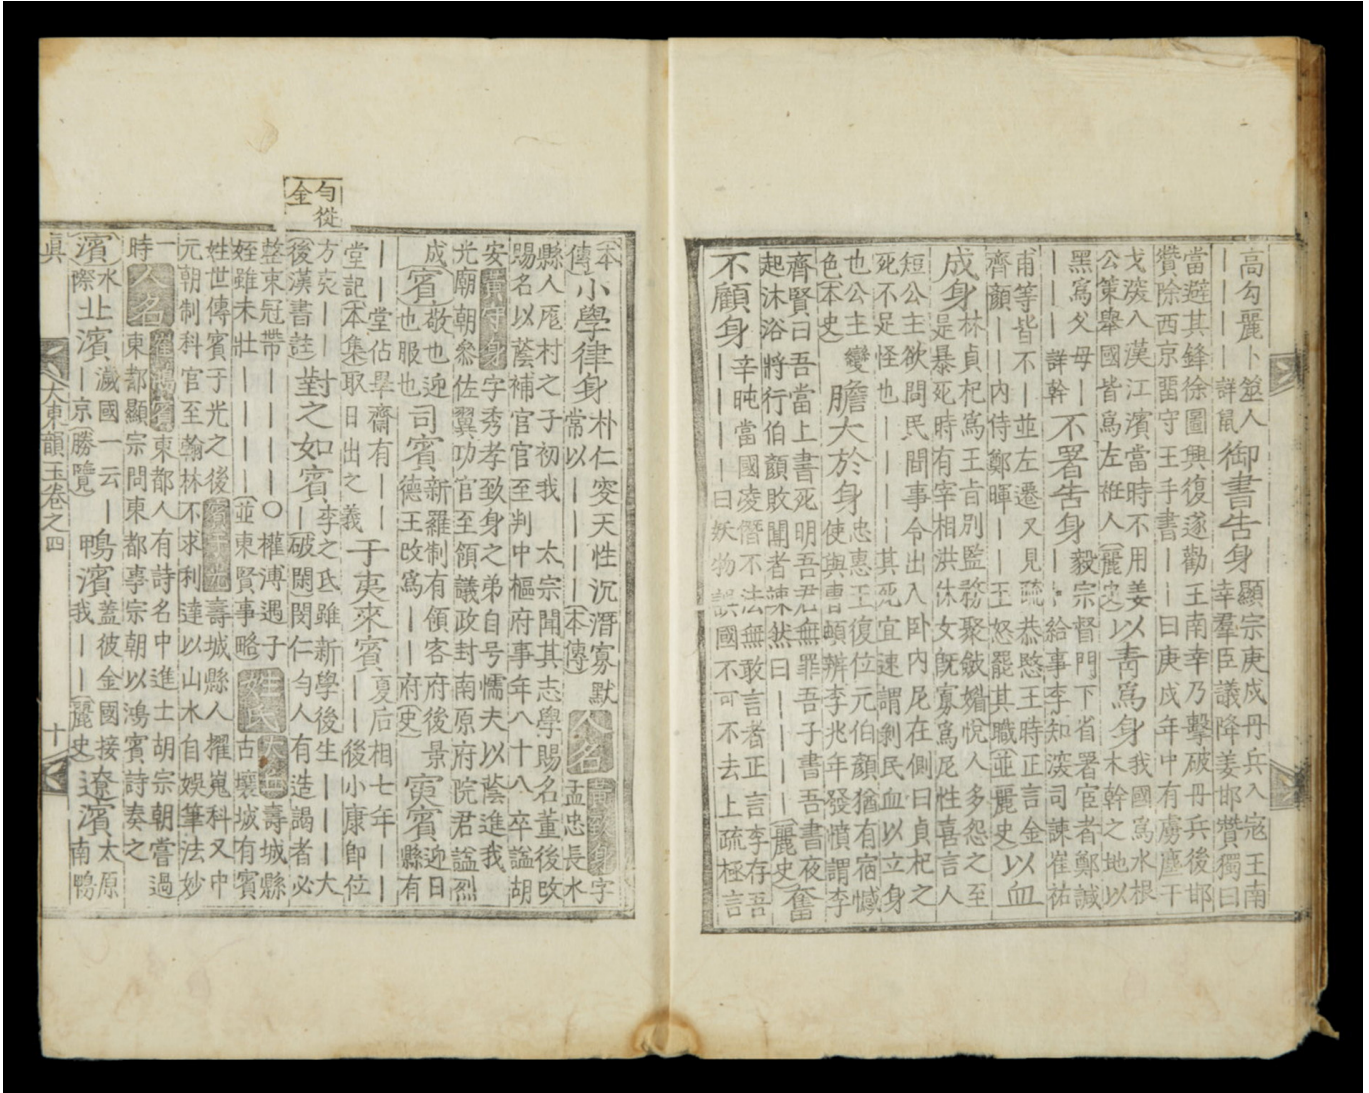 高勾麗卜筮人
——詳鼠
御書告身
顯宗庚戌丹兵入寇王南
幸羣臣議降姜邯贊獨曰
當避其鋒徐圖興復遂勸王南幸乃擊破丹兵後邯
贊除西京畱守王手書——曰庚戌年中有虜塵干
戈深入漢江濱當時不用姜
公策舉國皆爲左袵人(麗史)
以靑爲身
我國爲水根
木幹之地以
黑爲父母—
——詳幹
不署告身
毅宗督門下省署宦者鄭諴
——給事李知深司諫崔祐
甫等皆不—並左遷又見疏恭愍王時正言金
齊顏——內侍鄭暉——王怒罷其職(並麗史)
以血
成身
林貞杞爲王㫖別監務聚斂媚悅人多怨之至
是暴死時有宰相洪休女旣寡爲尼性喜言人
短公主欲問民間事令出入卧內尼在側曰貞杞之
死不足怪也————其死宜速謂剝民血以立身
也公主變
色(本史)
膽大於身
忠惠王復位元伯顏猶有宿憾
使與曹頔辨李兆年發憤謂李
齊賢曰吾當上書死明吾君無罪吾子書吾書夜
起沐浴將行伯顏敗聞者竦然曰————(麗史)
奮
不顧身
辛旽當國凌僭不法無敢言者正言李存吾
————曰妖物誤國不可不去上疏極言
(本
傳)
小學律身
朴仁突天性沉潛寡默
常以————(本傳)
人名
黃致身
字
孟忠長水
縣人厖村之子初我 太宗聞其志學賜名董後改
賜名以蔭補官官至判中樞府事年八十八卒諡胡
安
黃守身
字秀孝致身之弟自号懦夫以蔭進我
光廟朝參佐翼功官至領議政封南原府院君諡烈
成
賓
敬也迎
也服也
司賓
新羅制有領客府後景
德王改爲——府(史)
寅賓
迎日
縣有
——堂佔畢齋有——
堂記(本集)取日出之義
于夷來賓
夏后相七年——
——後小康卽位
方夷——
後漢書註)
對之如賓
李之氐雖新學後生——大
—(破閑)閔仁勻人有造謁者必
整束冠帶————○權溥遇子
姪雖未壯————(並東賢事略)
姓氏
大名
壽城縣
古壤城有賓
姓世傳賓于光之後
賓于光
壽城縣人擢嵬科又中
元朝制科官至翰林不求利達以山水自娛筆法妙
一
時
人名
羅鴻賓
東都人有詩名中進士胡宗朝嘗過
東都顯宗問東都事宗朝以鴻賓詩奏之
濱
水
際
北濱
濊國一云—
—京(勝覽)
鴨濱
蓋彼金國接
我——(麗史)
遼濱
太原
南鴨
眞
大東韻玉卷之四
十
勻從
金